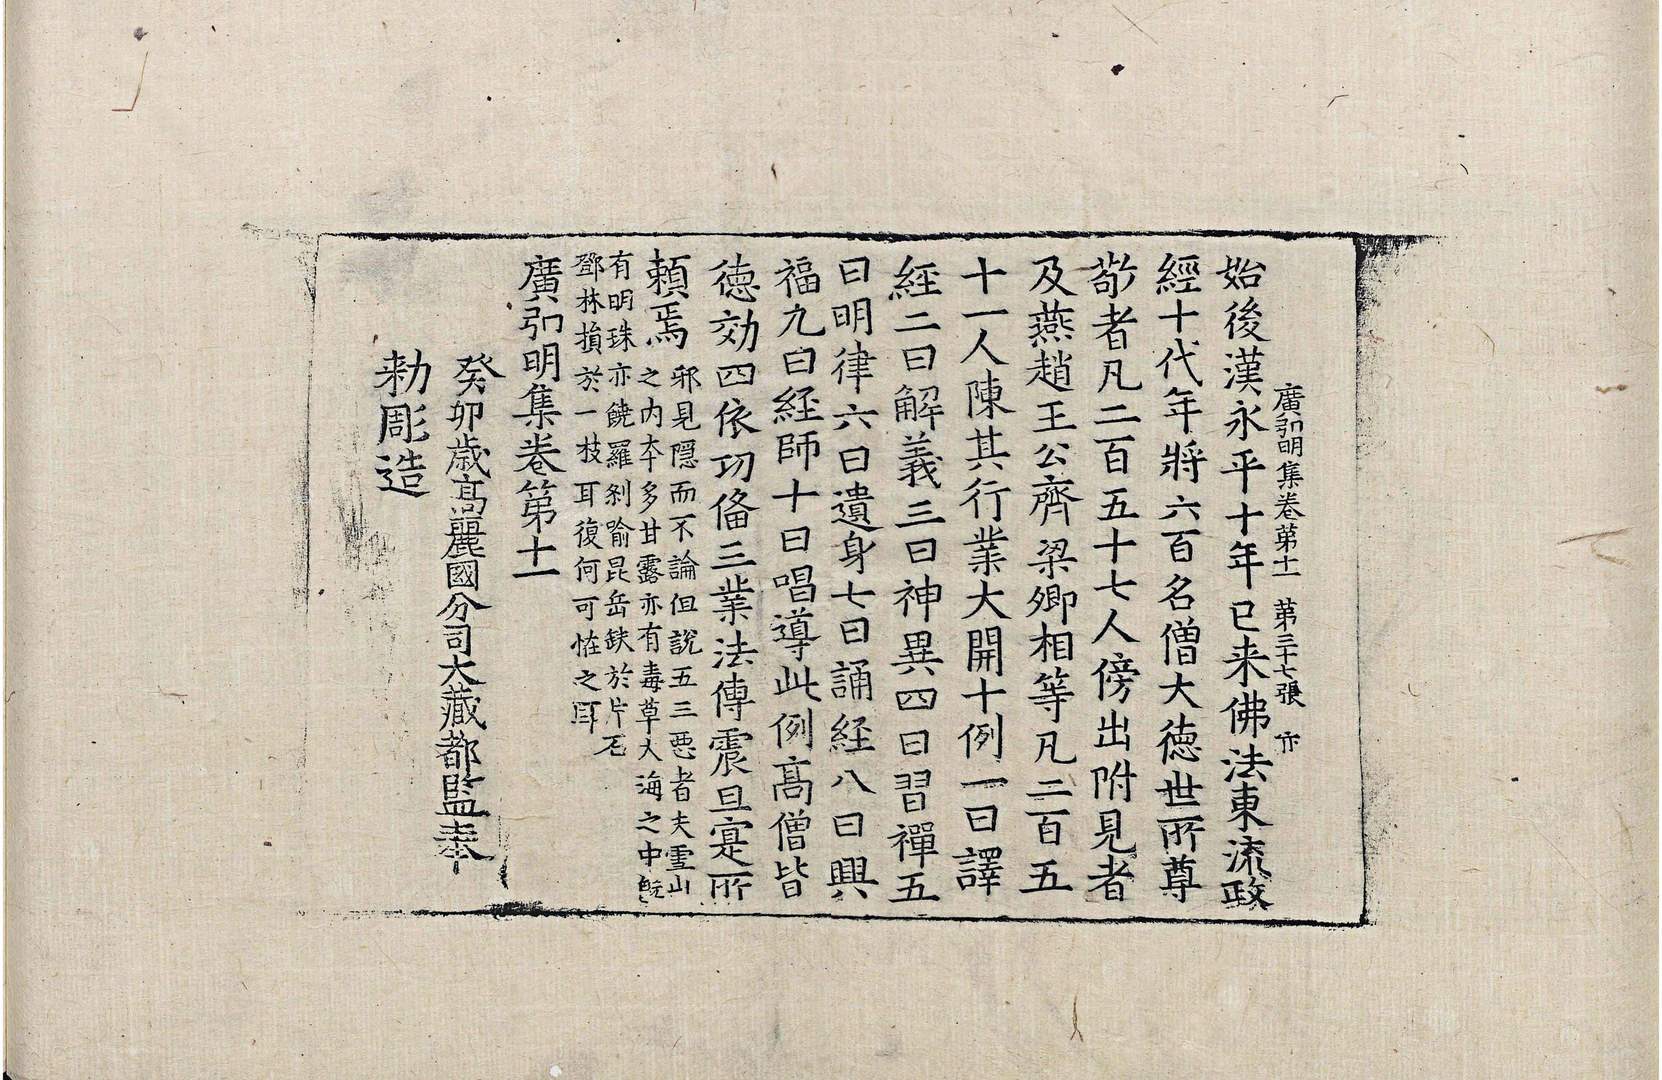 廣弘明集卷第十一 第三十七張 亦
始後漢永平十年已来佛法東流政
經十代年將六百名僧大德世所尊
敬者凡二百五十七人傍出附見者
及燕趙王公齊梁卿相等凡二百五
十一人陳其行業大開十例一曰譯
經二曰解義三曰神異四曰習禪五
曰明律六曰遺身七曰誦経八曰興
福九曰経師十曰唱導此例高僧皆
德効四依功俻三業法傳震旦寔所
賴焉
邪見隠而不論但說五三悪者夫雪山
之内夲多甘露亦有毒草大海之中旣
有明珠亦饒羅刹喻昆岳鈌於片石
鄧林損於一枝耳復何可恠之耳
廣弘明集卷第十一
癸卯歳高麗國分司大藏都監奉
勑彫造